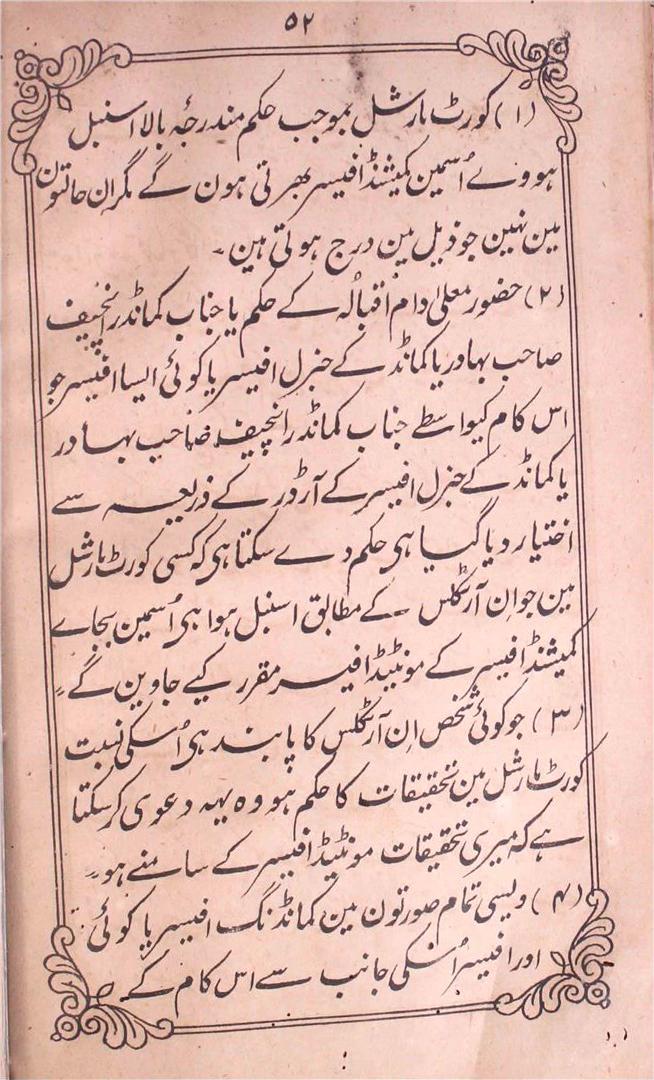 ۵۲
(۱) کورٹ مارشل بموجب حکم مندرجۂ بالا اسنبل
ہووے اُسمین کمیشنڈ افیسر بھرتی ہون گے مگر اِن حالتون
مین نہین جو ذیل مین درج ہوتی ہین۔
(۲) حضور معلیٰ دام اقبالُہ کے حکم یا جناب کمانڈر انچیف
صاحب بہادر یا کمانڈ کے جنرل افیسر یا کوئی ایسا افیسر جو
اس کام کیواسطے جناب کمانڈر انچیف صاحب بہادر
یا کمانڈ کے جنرل افیسر کے آرڈر کے ذریعہ سے
اختیار دیا گیا ہی حکم دے سکتا ہی کہ کسی کورٹ مارشل
مین جو اِن آرٹکلس کے مطابق اسنبل ہوا ہی اُسمین بجاے
کمیشنڈ افیسر کے مونٹیڈ افیسر مقرر کیے جاوین گے۔
(۳) جو کوئی شخص اِن آرٹکلس کا پابند ہی اُسکی نسبت
کورٹ مارشل مین تحقیقات کا حکم ہو وہ یہہ دعوی کرسکتا
ہے کہ میری تحقیقات مونٹیڈ افیسر کے سامنے ہو۔
(۴) ویسی تمام صورتون مین کمانڈنگ افیسر یا کوئی
اور افیسر اُسکی جانب سے اس کام کے